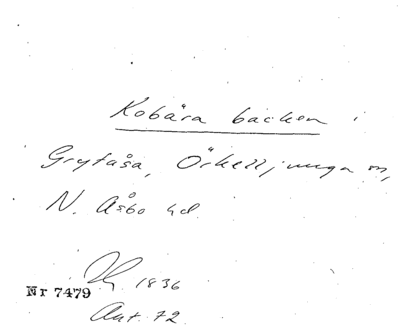 Kobära backen i
Grytåsa, Örkelljunga sn,
N. Åsbo hd.
1836
Nr 7479
Ant. 72